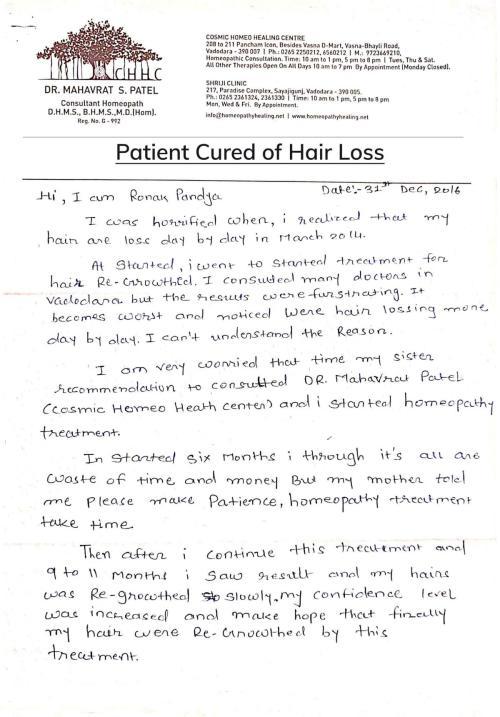 COSMIC HOMEO HEALING CENTRE
208 to 211 Pancham Icon, Besides Vasna D-Mart, Vasna-Bhayli Road,
Vadodara - 390 007 | Ph.: 0265 2250212, 6560212 | M.: 9723669210,
Homeopathic Consultation. Time: 10 am to 1 pm, 5 pm to 8 pm | Tues, Thu & Sat.
All Other Therapies Open On All Days 10 am to 7 pm By Appointment (Monday Closed).
SHRIJI CLINIC
217, Paradise Complex, Sayajigunj, Vadodara - 390 005.
Ph.: 0265 2361324, 2361330 | Time: 10 am to 1 pm, 5 pm to 8 pm
Mon, Wed & Fri. By Appointment.
info@homeopathyhealing.net | www.homeopathyhealing.net
CHHC
DR. MAHAVRAT S. PATEL
Consultant Homeopath
D.H.M.S., B.H.M.S.,M.D.(Hom).
Reg. No. G - 992
Patient Cured of Hair Loss
Date:- 31st Dec, 2016
Hi, I am Ronak Pandya
I was horrified when, i realized that my
hair are loss day by day in March 2014.
At Started, i went to started treatment for
hair Re-Growthed. I consulted many doctors in
Vadodara but the results were furstrating. It
becomes worst and noticed were hair lossing more
day by day. I can't understand the Reason.
I am very worried that time my sister
recommendation to consulted DR. Mahavrat Patel
(Cosmic Homeo Heath center) and i started homeopathy
treatment.
In Started six Months i through it's all are
waste of time and money But my mother told
me please make Patience, homeopathy treatment
take time.
Then after i continue this treatement and
9 to 11 Months i saw result and my hairs
was Re-growthed slowly. my confidence level
was increased and make hope that finally
my hair were Re-Growthed by this
treatment.